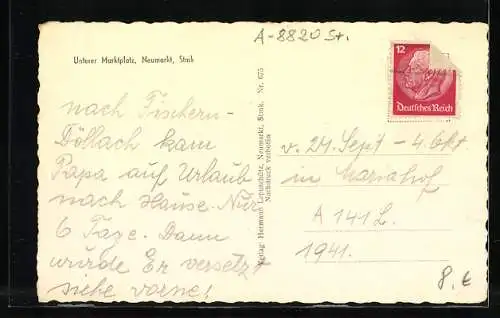 A-8820 St.
Unterer Marktplatz, Neumarkt, Stmk
12
Deutsches Reich
nach Fischern-
Döllach kam
Papa auf Urlaub
nach Hause. Nur
6 Tage. Dann
wurde Er versetzt
siehe vorne!
Verlag: Hermann Neumarkt, Stmk. Nr. 675
Nachdruck verboten
v. 24. Sept - 4. Okt
in Mariahof
A 141 L.
1941.
8.€